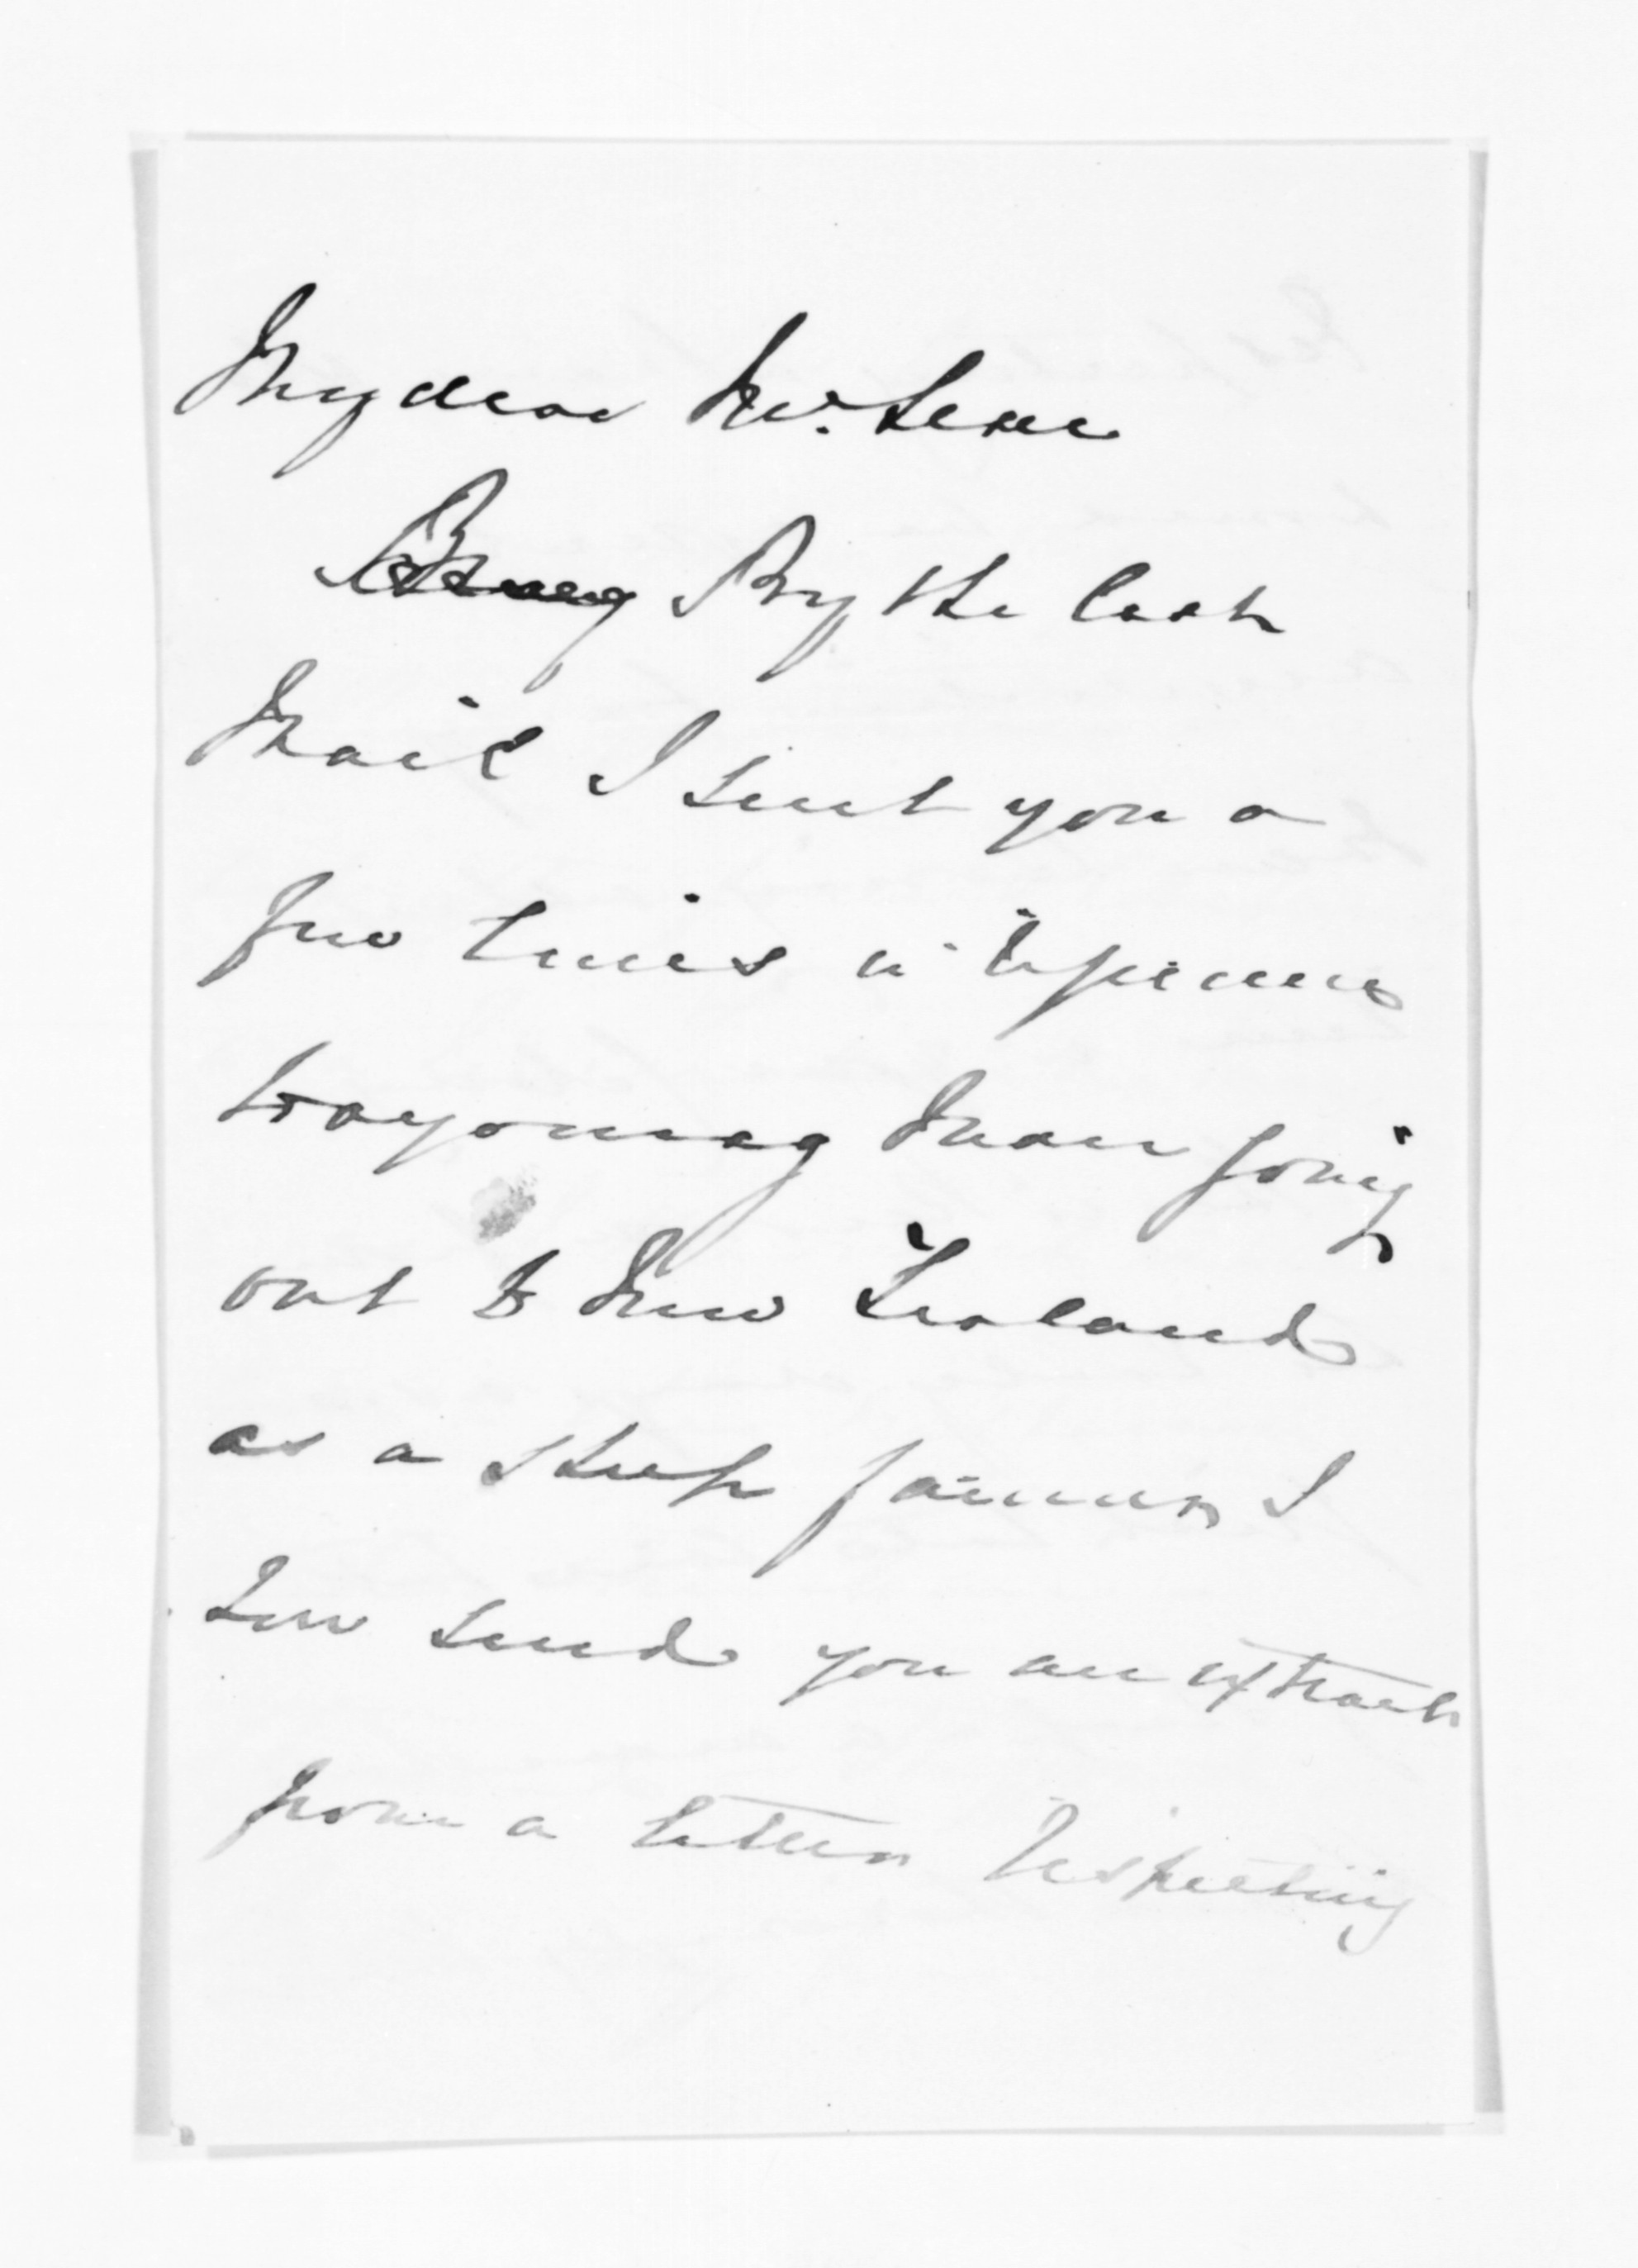 My dear McLean
By the last
Mail I sent you a
few lines in reference
to a young Man going
out to New Zealand
as a sheep farmer, I
now send you an extract
from a letter respecting